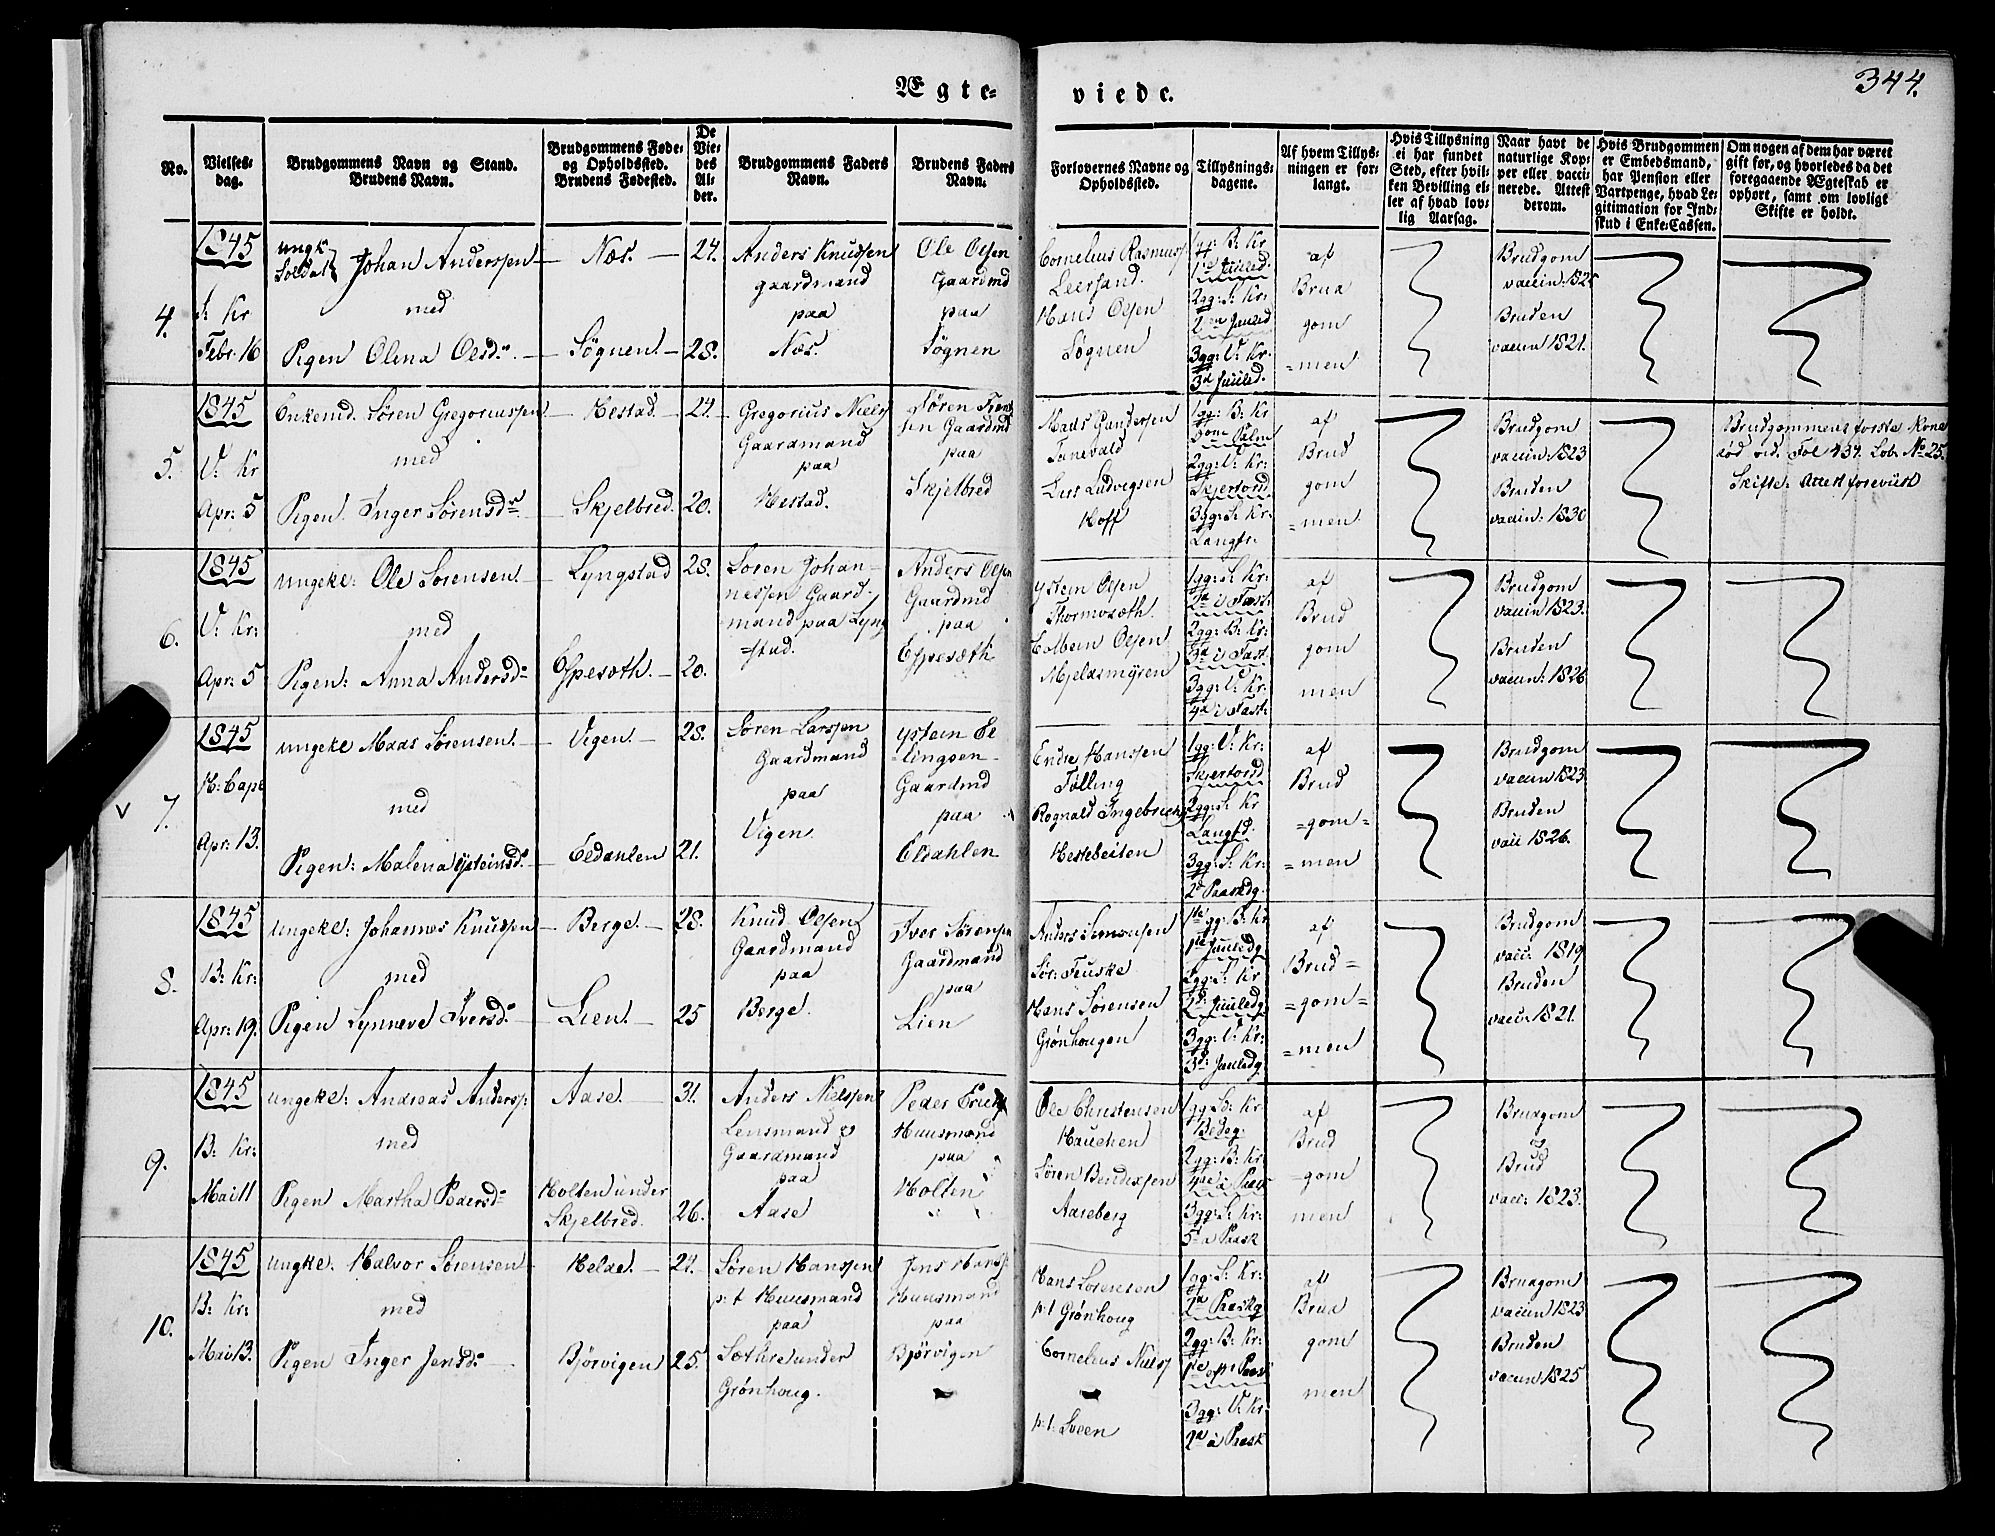 344.
Ægte- viede.
No.
Vielses-
dag.
Brudgommens Navn og Stand.
Brudens Navn.
Brudgommens Føde-
og Opholdssted.
Brudens Fødested.
De
Vie-
des
Al-
der.
Brudgommens Faders
Navn.
Brudens Faders
Navn.
Forlovernes Navne og
Opholdssted.
Tillysnings-
dagene.
Af hvem Tillys-
ningen er for-
langt.
Hvis Tillysning
ei har fundet
Sted, efter hvil-
ken Bevilling el-
ler af hvad lov-
lig Aarsag.
Naar havt de
naturlige Kop-
per eller vacci-
nerede. Attest
derom.
Hvis Brudgommen
er Embedsmand,
har Pension eller
Vartpenge, hvad Le-
gitimation for Ind-
skud i Enke-Cassen.
Om nogen af dem har været
gift før, og hvorledes da det
foregaaende Ægteskab er
ophørt, samt om lovligt
Skifte er holdt.
4.
1845
S: Kr
Febr: 16
ungk:
Soldat Johan Anderssen
med
Pigen Olena Olsd:
Næs.
Søgnen.
24.
28.
Anders Knudsen
gaardmand
paa
Næs.
Ole Olsen
Gaardmd
paa
Søgnen
Cornelius Rasmuss
Leersand.
Hans Olsen
Søgnen
1gg: B: Kr
1te Juled.
2gg: S: Kr:
2den Juled
3gg: V: Kr.
3d Juled.
af
Brud
gom
=men
Brudgom
vaccin: 1825
Bruden
vaccin 1821.
5.
1845
V: Kr
Apr: 5
Enkemd. Søren Gregoriussen
med
Pigen. Inger Sørensdr
Hestad.
Skjelbred.
24.
20.
Gregorius Niels
Gaardmand
paa
Hestad.
Søren
sen Gaardmd
paa
Skjelbred
Mads Gundersen
Tanevald
Lars Ludvigsen
Hoff
1gg: B: Kr
Palm
2gg: V: Kr:
Skjertorsd
3gg: S: Kr:
Langfr:
af
Brud
gom
=men
Brudgom
vaccin: 1823
Bruden
vaccin: 1830
Brudgommens første Kone
død vid. Fol 434. Lob. No 25.
Skifte: Attest foreviist
6.
1845
V: Kr:
Apr: 5
ungeke: Ole Sørensen
med
Pigen: Anna Andersd=
Lyngstad
Espesæth.
28.
20.
Søren Johan-
nessen Gaard-
mand paa Lyng
=stad.
Anders Olsen
Gaardmd
paa
Espesæth
Ystein Olsen
Thormosæth.
Olsen
Mjeldsmyren
1gg: S: Kr:
2d i Fast:
2gg: B: Kr:
3d i Fast.
3gg: V: Kr:
4d i Fast:
af
Brud
gom
men
Brudgom
vaccin 1823.
Bruden
vaccin: 1826
7.
1845
H: Cape
Apr: 13.
ungeke Mads Sørensen.
med
Pigen: Malena Ysteinsd.
Vigen.
Eldahlen
28.
21.
Søren Larssen
Gaardmand
paa
Vigen.
Ystein El
-lingsen
Gaardmd
paa
Eldahlen
Endre Hanssen
Tølling
Rognald Ingebrechs
Hestebeiten
1gg: V: Kr:
Skjertorsd
2gg: S: Kr
Langfd.
3gg: S: Kr:
2d Paaskdg.
af
Brud
=gom=
=men
Brudgom
vaccin 1823.
Bruden
vacci 1826.
8.
1845
B: Kr:
Apr: 19.
ungeke: Johannes Knudsen
med
Pigen Synneve Iversd.
Berge.
Lien.
28.
25
Knud Olsen
Gaardmand
paa
Berge.
Iver Sørensen
Gaardmand
paa
Lien
Anders Simonsen
Sør: Fuuske
Hans Sørensen
Grønhougen
1te gg: B: Kr
1te Juuledg
2gg: S: Kr
2d Juuledg.
3gg: V: Kr:
3d: Juuledg
af
Brud=
=gom=
=men
Brudgom
vacci: 1819
Bruden
vacci: 1821.
9.
1845
B: Kr:
Mai 11
ungeke: Andreas Anderss:
med
Pigen Martha Pedersd=
Aase.
Holten under
Skjelbred.
31.
26.
Anders Nielsen
Lensmand og
Gaardmand
paa
Aase
Peder
Huusmand
paa
Holten
Ole Christensen
Hauchen
Søren Bendixsen
Aaseberg
1gg S: Kr:
Bedeg.
2gg: B: Kr:
4de á Paask
3gg: S: Kr:
5 a Paask
af
Brud
=gom
men
Brudgom
og
Brud
vacci: 1823.
10.
1845
B: Kr:
Mai 13.
ungke. Halvor Sørensen
med
Pigen Inger Jensd:
Helde.
Bjørvigen
24.
25.
Søren Hanssen
p: t Huusmand
paa
Sæthre under
Grønhoug.
Jens Hans
Huusmand
paa
Bjørvigen
Hans Sørensen
p: t Grønhoug
Cornelius Niels
p: t: Sveen
1gg: S: Kr:
2d Paaskg
2gg: B: Kr:
1te Paask
3gg: V: Kr:
2d á Paask
af
Brud
gom
men
Brudgom
vaccin 1823
Bruden
vaccin 1825